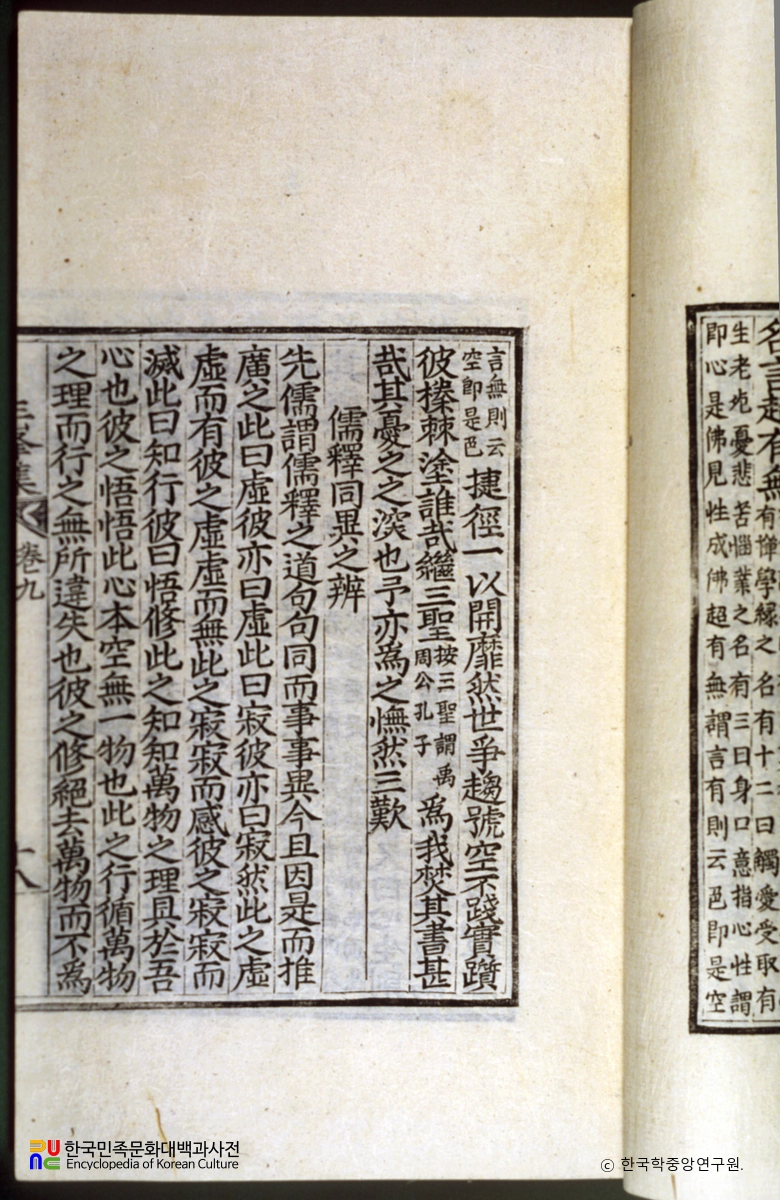 名言起有無
有惟學緣之名有十二曰觸愛受取有
生老死憂悲苦惱業之名有三曰身口意指心性謂
即心是佛見性成佛超有無謂言有則云色即是空
言無則云
空即是色
捷徑一以開靡然世爭趨號空不踐實躓
彼榛棘塗誰哉繼三聖
按三聖謂禹
周公孔子
爲我焚其書甚
哉其憂之之深也予亦爲之憮然三歎
儒釋同異之辨
先儒謂儒釋之道句句同而事事異今且因是而推
廣之此曰虛彼亦曰虛此曰寂彼亦曰寂然此之虛
虛而有彼之虛虛而無此之寂寂而感彼之寂寂而
滅此曰知行彼曰悟修此之知知萬物之理具於吾
心也彼之悟悟此心本空無一物也此之行循萬物
之理而行之無所違失也彼之修絕去萬物而不爲
三峯集 卷九 十八
한국민족문화대백과사전
Encyclopedia of Korean Culture
ⓒ 한국학중앙연구원.